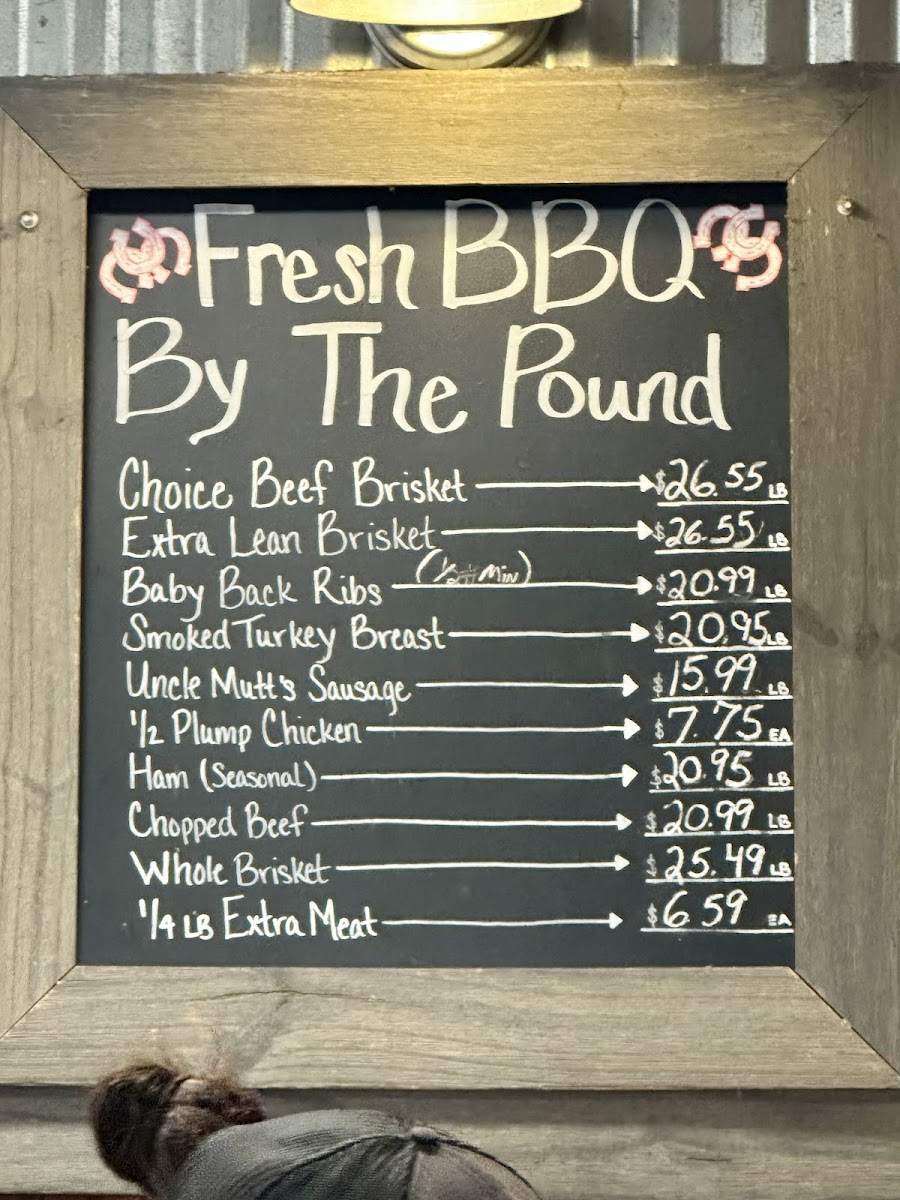 Fresh BBQ
By The Pound
Choice Beef Brisket $26.55 LB
Extra Lean Brisket $26.55 LB
Baby Back Ribs (1/2# Min) $20.99 LB
Smoked Turkey Breast $20.95 LB
Uncle Mutt's Sausage $15.99 LB
1/2 Plump Chicken $7.75 EA
Ham (Seasonal) $20.95 LB
Chopped Beef $20.99 LB
Whole Brisket $25.49 LB
1/4 LB Extra Meat $6.59 EA